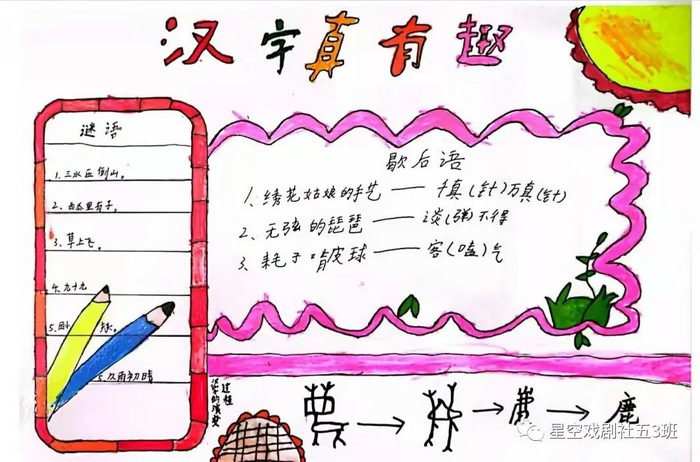 汉字真有趣
谜语
1、三水压倒山。
2、西瓜里有子。
3、草上飞。
4、九十九
5、
6、久雨初晴
歇后语
1、绣花姑娘的手艺——千真(针)万真(针)
2、无弦的琵琶——谈(弹)不得
3、耗子啃皮球——客(嗑)气
汉字的演变
过程
鹿
星空戏剧社五3班